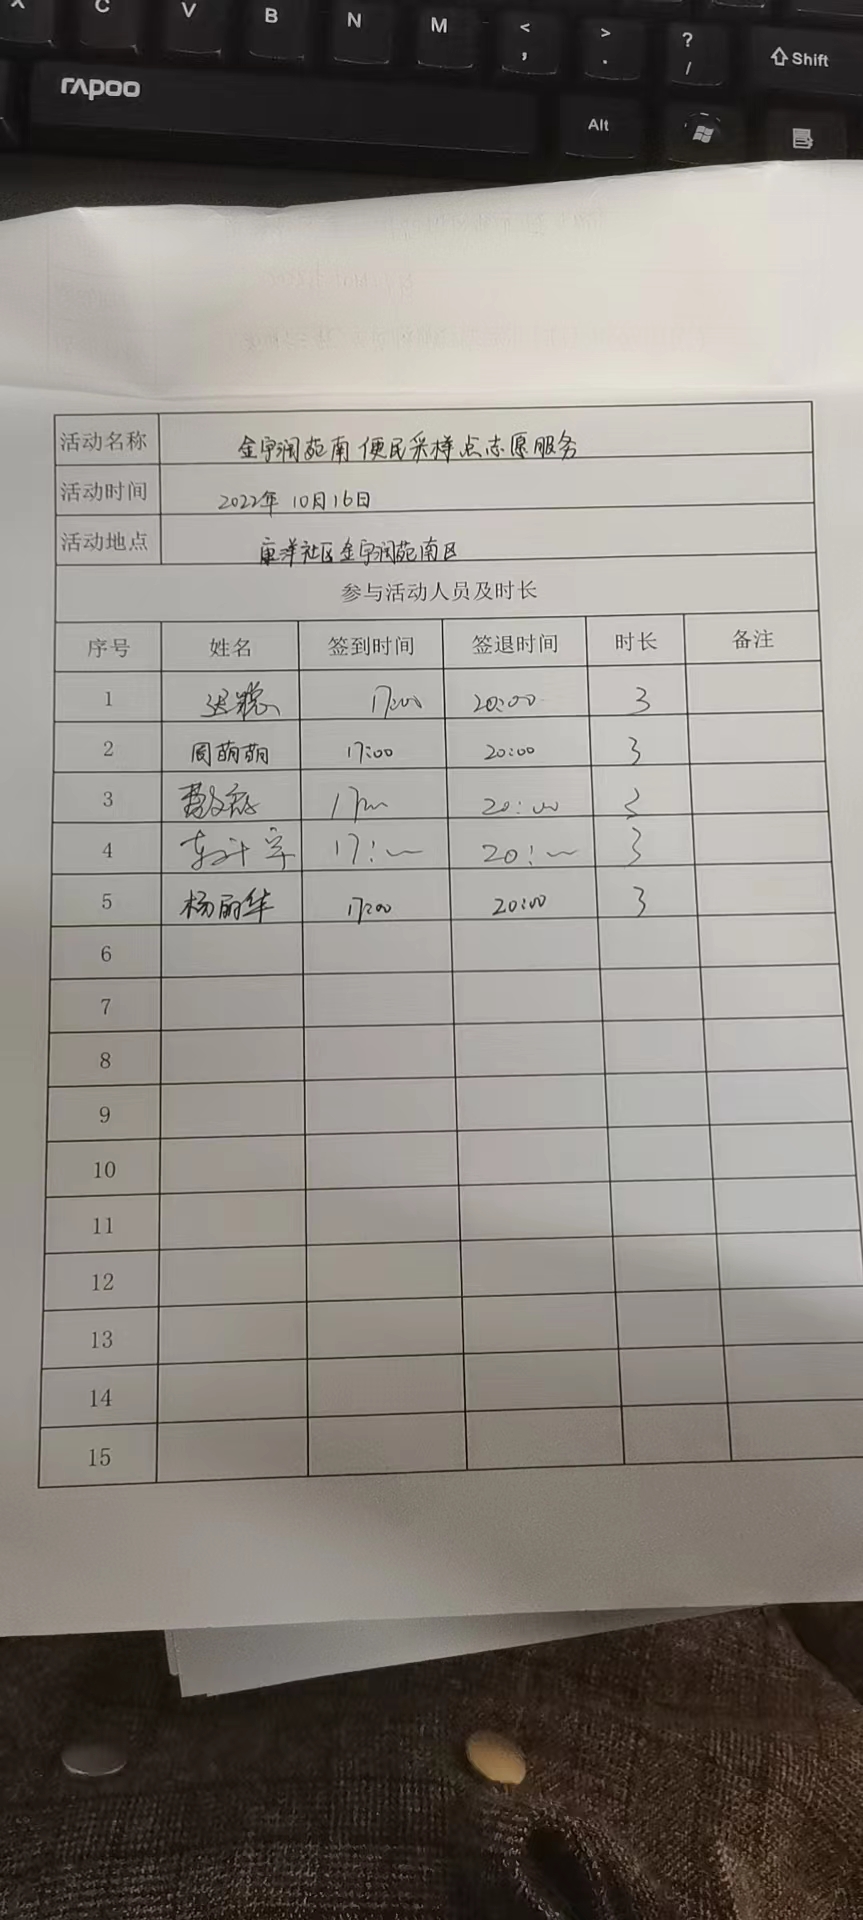 X C V B N M < , > . ? / Shift
rapoo Alt
活动名称 金宇润苑南便民采样点志愿服务
活动时间 2022年10月16日
活动地点 康洋社区金宇润苑南区
参与活动人员及时长
序号 姓名 签到时间 签退时间 时长 备注
1 17:00 20:00 3
2 周萌萌 17:00 20:00 3
3 20:00 3
4 17:00 20:00 3
5 杨丽华 17:00 20:00 3
6
7
8
9
10
11
12
13
14
15